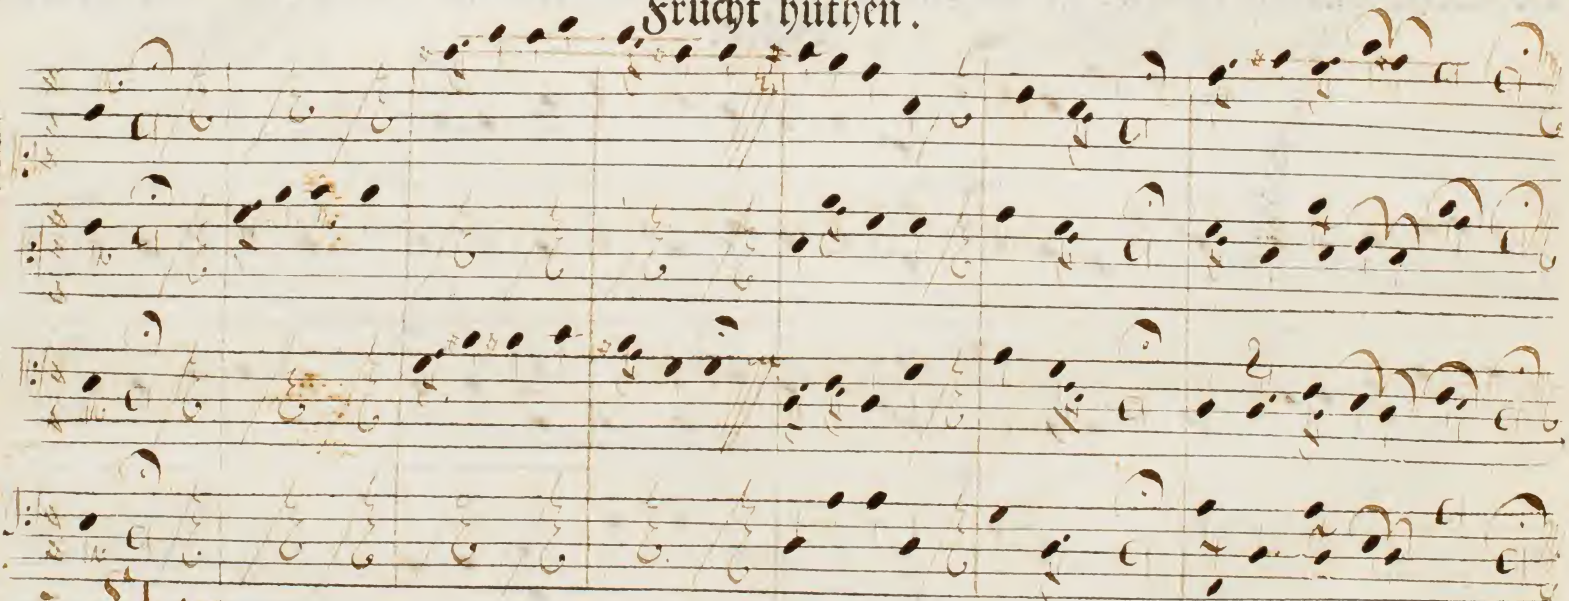 Frucht hüthen.